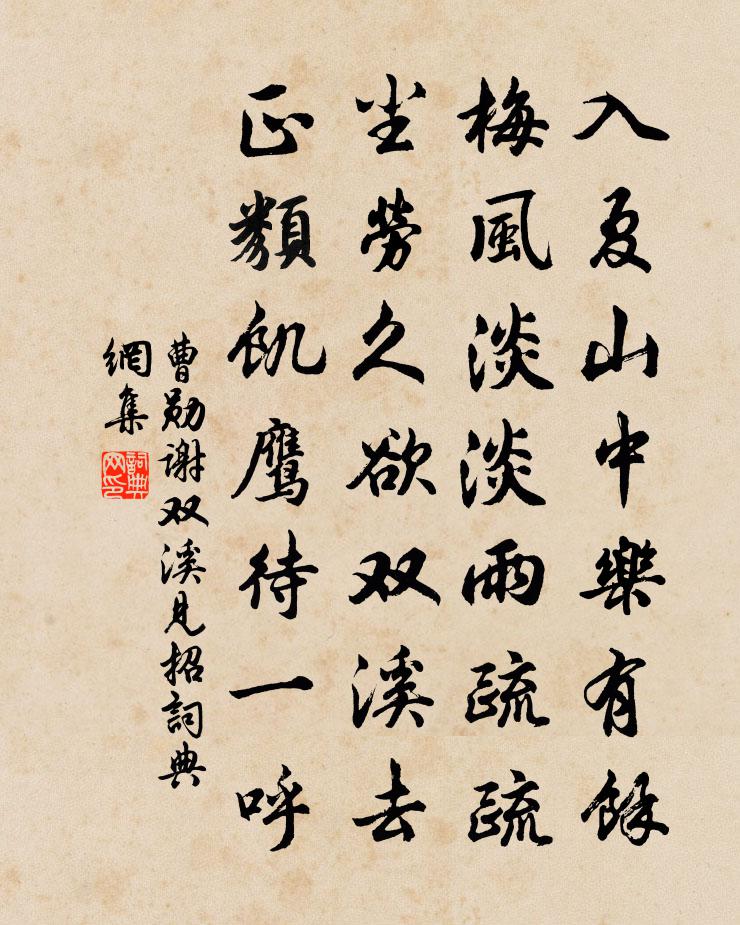 入夏山中樂有餘
梅風淡淡雨疏疏
尘勞久欲双溪去
正類飢鷹待一呼
曹勋谢双溪見招詞典
網集
詞典
网印